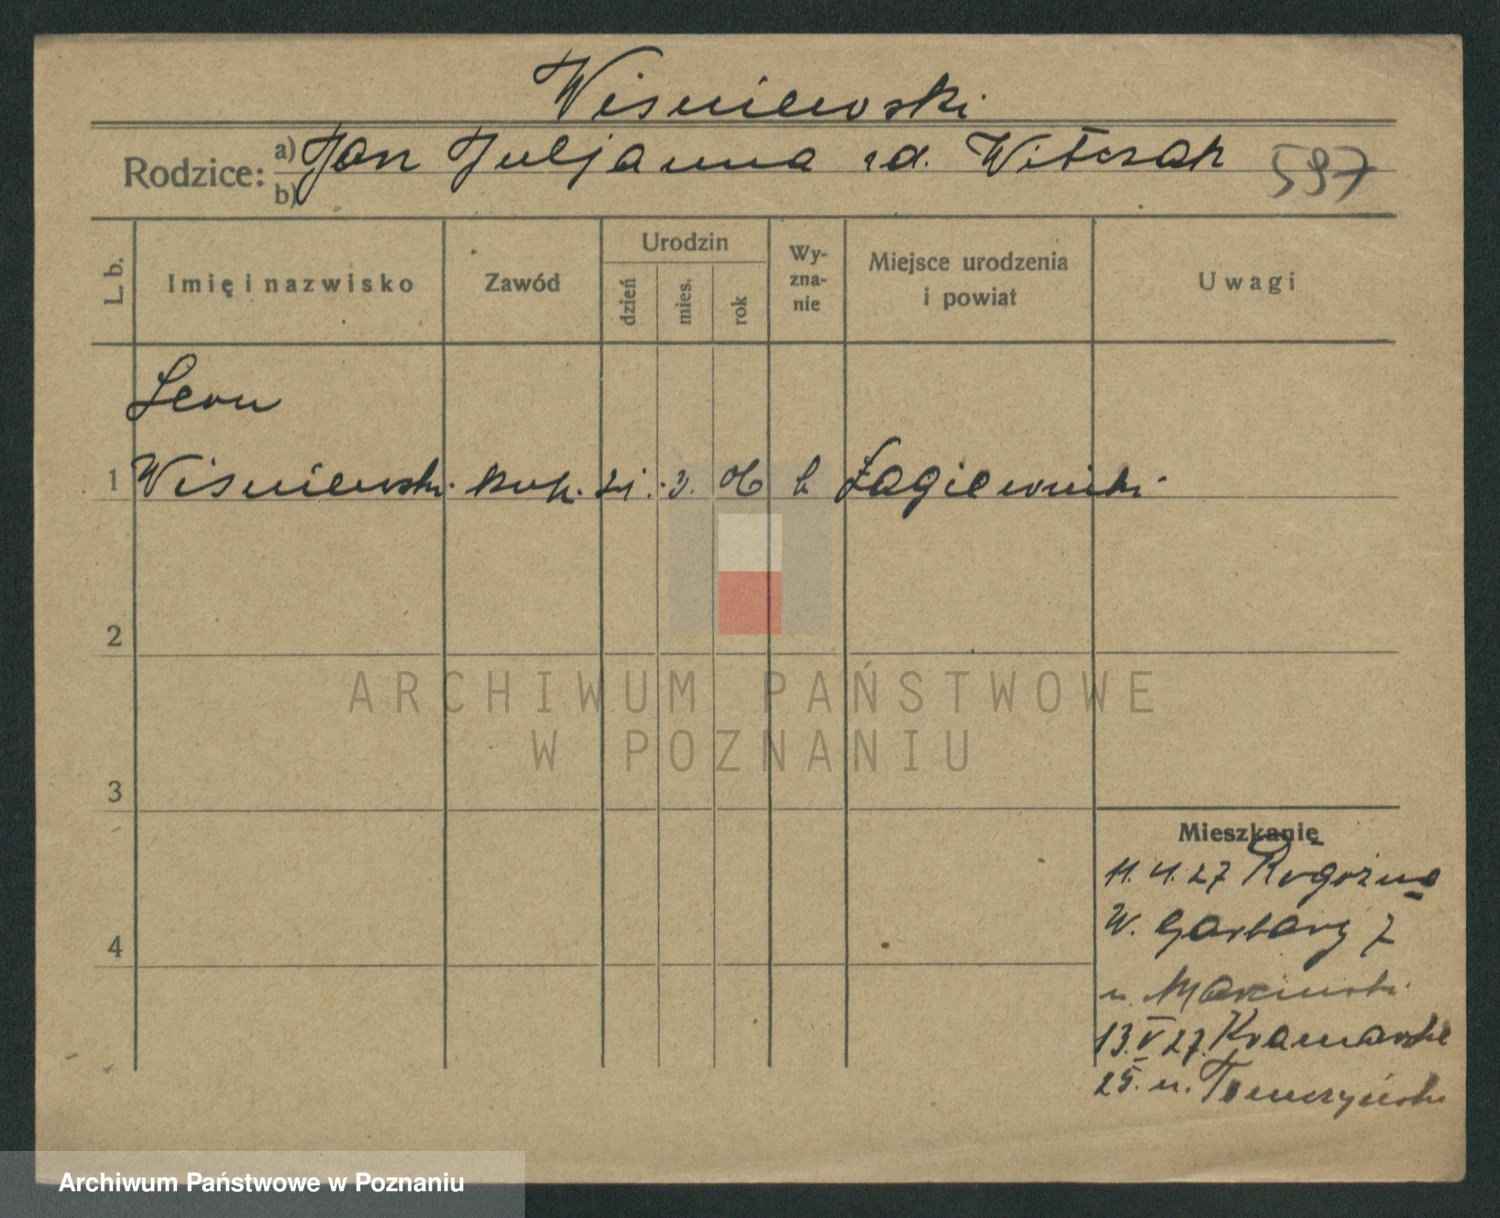 Wiśniewski
Rodzice: a) Jan Juljanna zd. Witczak 597
b)
L. b. Imię i nazwisko Zawód Urodzin dzień mies. rok Wy-zna-nie Miejsce urodzenia i powiat Uwagi
Leon
1 Wiśniewski kup. 21. 3. 06 k Łagiewniki
2
ARCHIWUM PAŃSTWOWE
W POZNANIU
3
Mieszkanie
11.4.27 Rogoźno
4 W. Garbary 7
u. Marciński
13.V 27. Kramarska
25. u. Tomczyński
Archiwum Państwowe w Poznaniu